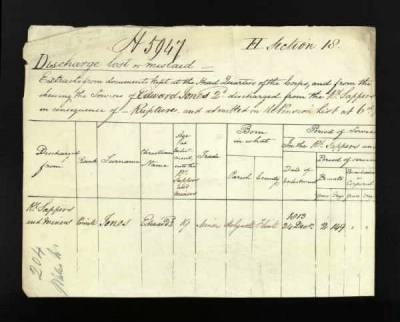 H 5947
H Section 18.
Discharge lost or mislaid —
Extracts from documents kept at the Head Quarters of the Corps, and from the
shewing the Service of Edward Jones 2d discharged from the Rl Sappers
in consequence of — Rupture, and admitted in Pension List at 6d
Discharged from
Rank
Surname
Christian Name
Age
into the Rl Sappers and Miners
Trade
Born in what
Parish
County
Period of Service
In the Rl Sappers and
Date of
Period of
Private
Corporal
Years
Days
Years
Days
Rl Sappers and Miners
Jones
Edward 2d
19
Miner
Flint
1813
24 Decr
2
149
204